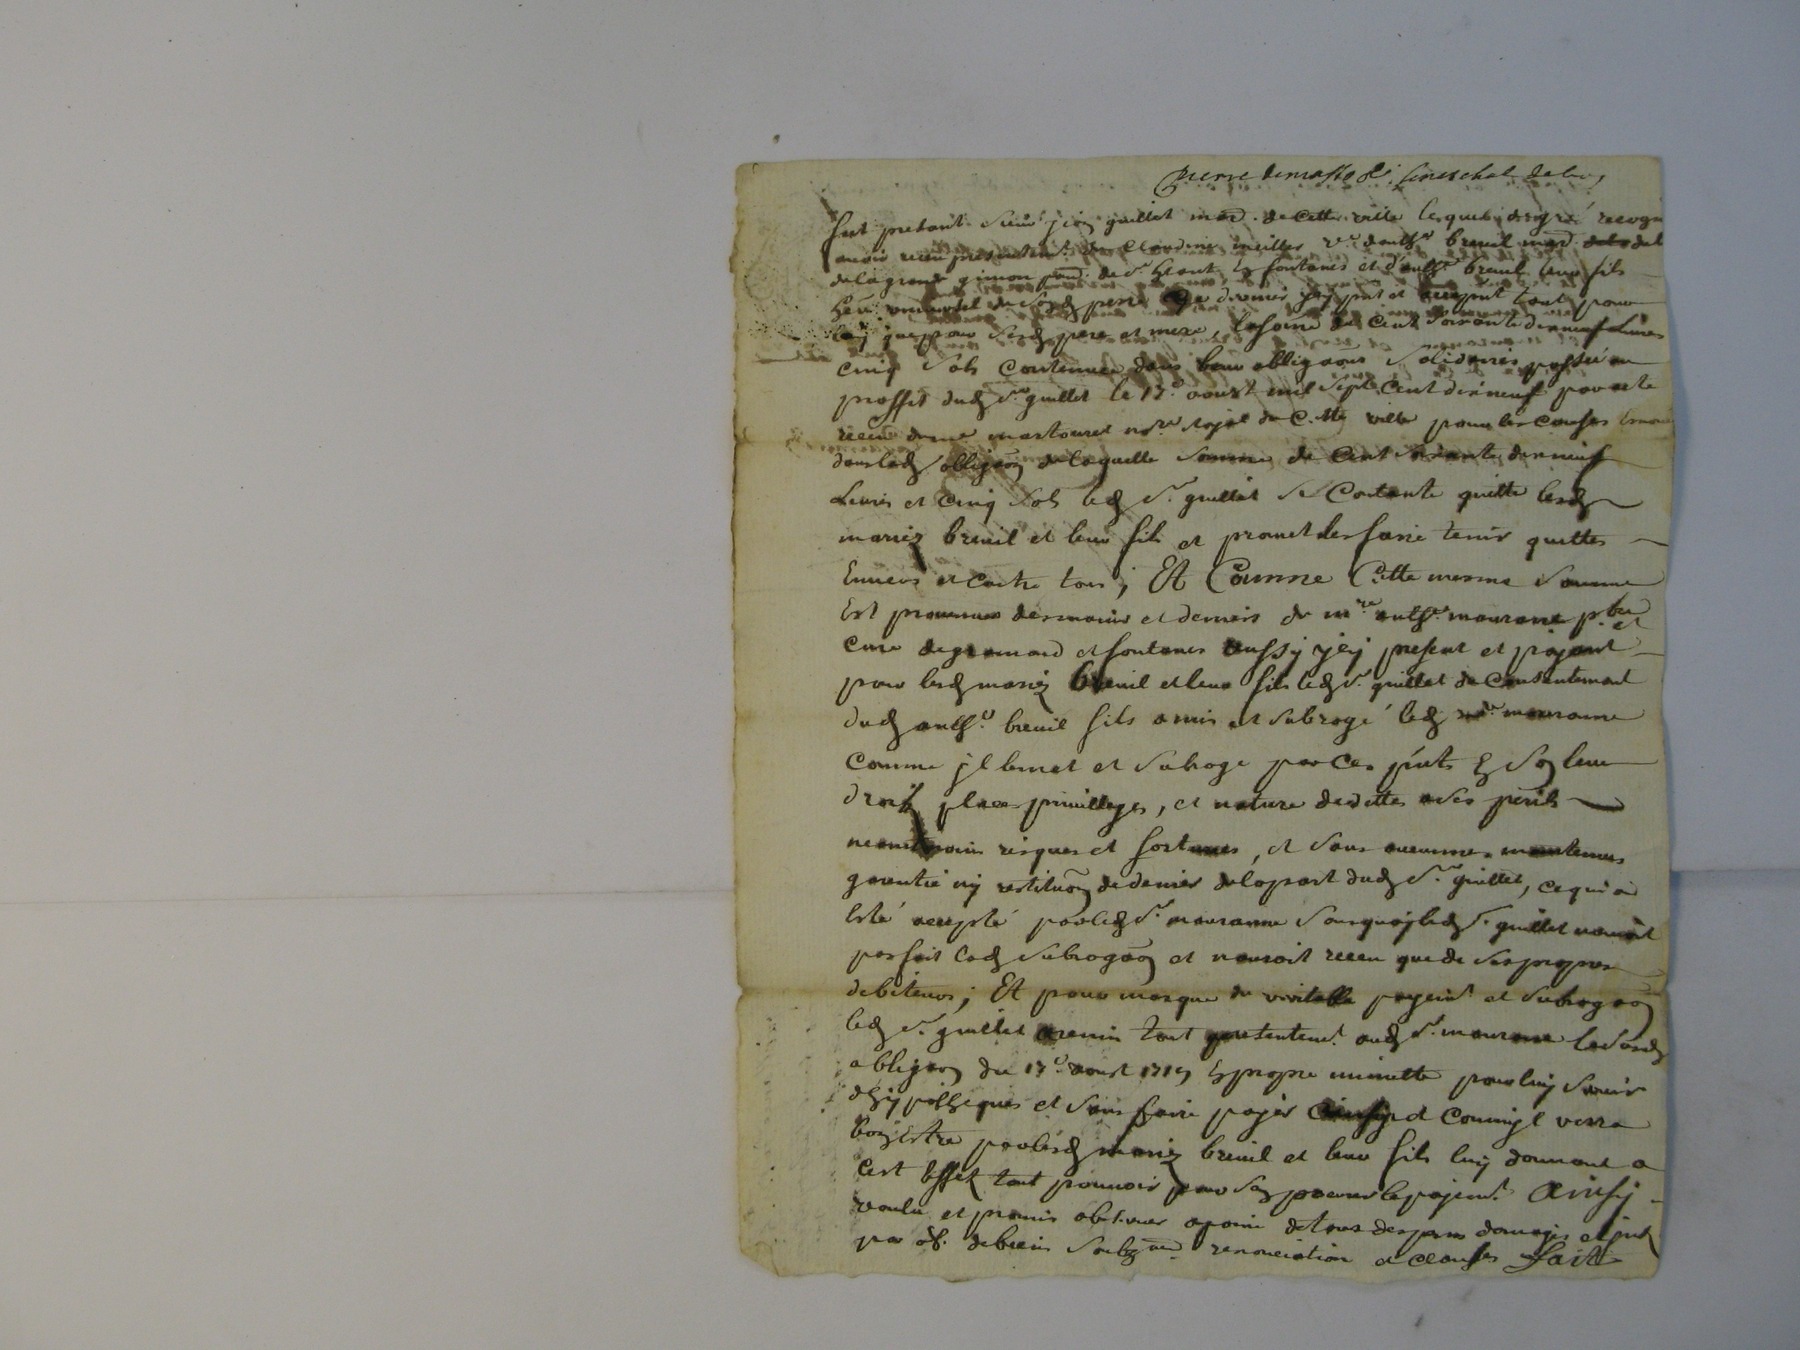 pierre demasso de seneschal de
fut present sieur jean guillet mard. de cette ville lequel de gré recogn
avoir receu presentemt. de claudine meiller ve. d'anthe. breuil mard.
de la grand et fontanes et d'anthe. breuil leur fils
here. universel de sond pere
luy que pour sesd pere et mere, la some de cent soixante dix neuf livres
cinq sols contenue dans leur obligaôn solidaires passée au
proffit dud sr. guillet le 17e. aoust mil sept cent dix neuf par acte
receu de me nore. royal de cette ville pour les causes
dans lad obligaôn de laquelle somme de cent soixante dix neuf
livres et cinq sols led sr. guillet se contente quitte lesd
mariez breuil et leur fils et promet les faire tenir quittes
envers et contre tous; Et Comme Cette mesme somme
est provenue des mains et deniers de mre. anthe. mouranne pbre et
curé de grammond et fontanes aussy icy present et payant
pour lesd mariez breuil et leur fils led sr. guillet du consentement
dud anthe. breuil fils a mis et subrogé led sr. mouranne
comme jl le met et subroge par ces pnts en son lieu
droit place privilleges, et nature de dette a ses perils
neantmoins risques et fortunes, et sans aucunne maintenue
garentie ny restituôn de deniers de la part dud sr. guillet, ce qui a
esté accepté par led sr. mouranne sans quoy led sr. guillet n'auroit
pas fait lad subrogaôn et n'auroit receu que de ses propres
debiteurs; Et pour marque de veritable payemt. et subrogaôn
led sr. guillet a remis tout presentemt. aud sr. mouranne la susd
obligaôn du 17e. aoust 1719 en propre minutte pour luy servir
d'hÿpotheques et s'en faire payer ainsy et comm'jl verra
bon estre par lesd mariez breuil et leur fils luy donnant a
cest effet tout pouvoir pour s'en procurer le payemt. Ainsy
voulu et promis observer a peine de tous despens domages et
par obl. de biens renonciation et clauses fait